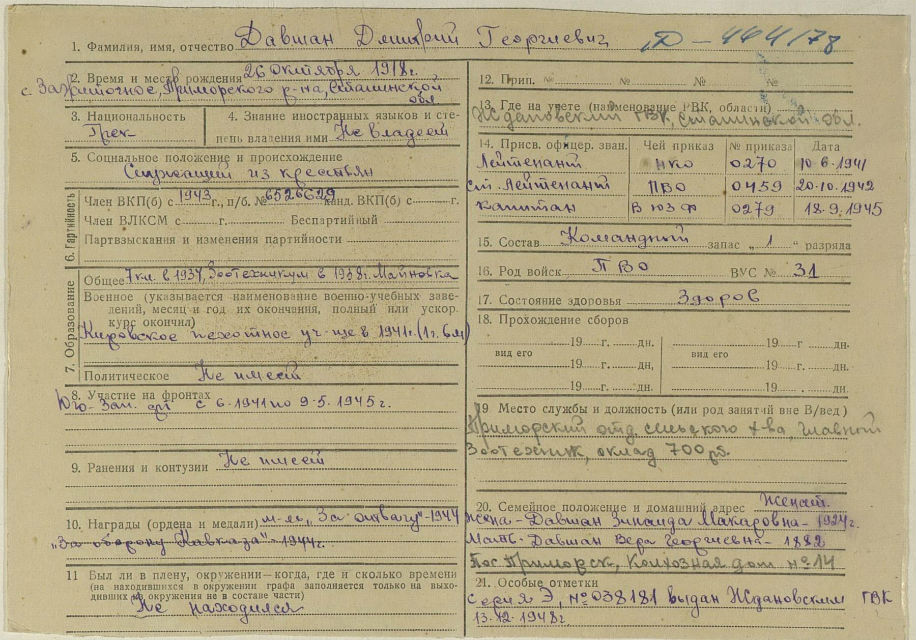 1. Фамилия, имя, отчество Давшан Дмитрий Георгиевич
Д – 444178
2. Время и место рождения 26 октября 1918г.
с. Приморского р-на, Сталинской
обл.
3. Национальность
Грек
4. Знание иностранных языков и сте-
пень владения ими Не владеет
5. Социальное положение и происхождение
Служащий из крестьян
6. Партийность
Член ВКП(б) с 1943 г., п/б. № 6526629 канд. ВКП(б) с г.
Член ВЛКСМ с г. Беспартийный
Партвзыскания и изменения партийности
7. Образование
Общее 7кл. в 1937, Зоотехникум в 1938г. Майновка
Военное (указывается наименование военно-учебных заве-
дений, месяц и год их окончания, полный или ускор.
курс окончил)
Кировское пехотное уч-ще в 1941г. (1г. 6м)
Политическое Не имеет
8. Участие на фронтах
Юго-Зап. фр с 6.1941 по 9.5.1945г.
9. Ранения и контузии Не имеет
10. Награды (ордена и медали) м-ль „За отвагу"-1944
„За оборону Кавказа"-1944г.
11 Был ли в плену, окружении—когда, где и сколько времени
(на находившихся в окружении графа заполняется только на выхо-
дивших из окружения не в составе части)
Не находился
12. Прип. № № № №
13. Где на учете (наименование РВК, области)
Ждановский ГВК, Сталинской обл.
14. Присв. офицер. зван. Чей приказ № приказа Дата
Лейтенант НКО 0270 10.6.1941
ст. Лейтенант ПВО 0459 20.10.1942
Капитан В ЮЗФ 0279 18.9.1945
15. Состав Командный запас „ 1 " разряда
16. Род войск ПВО ВУС № 31
17. Состояние здоровья Здоров
18. Прохождение сборов
19 г. дн. 19 г. дн.
вид его вид его
19 г. дн. 19 г. дн.
19 г. дн. 19 г. дн.
19 Место службы и должность (или род занятий вне В/вед)
Приморский отд. сельского х-ва, главный
Зоотехник, оклад 700 р.
20. Семейное положение и домашний адрес Женат.
Жена-Давшан Зинаида Макаровна-1924г.
Мать-Давшан Вера Георгиевна-1882
Пос. Приморск, Колхозная дом №14
21. Особые отметки
Серия Э, №038181 выдан Ждановским ГВК
13.12.1948г